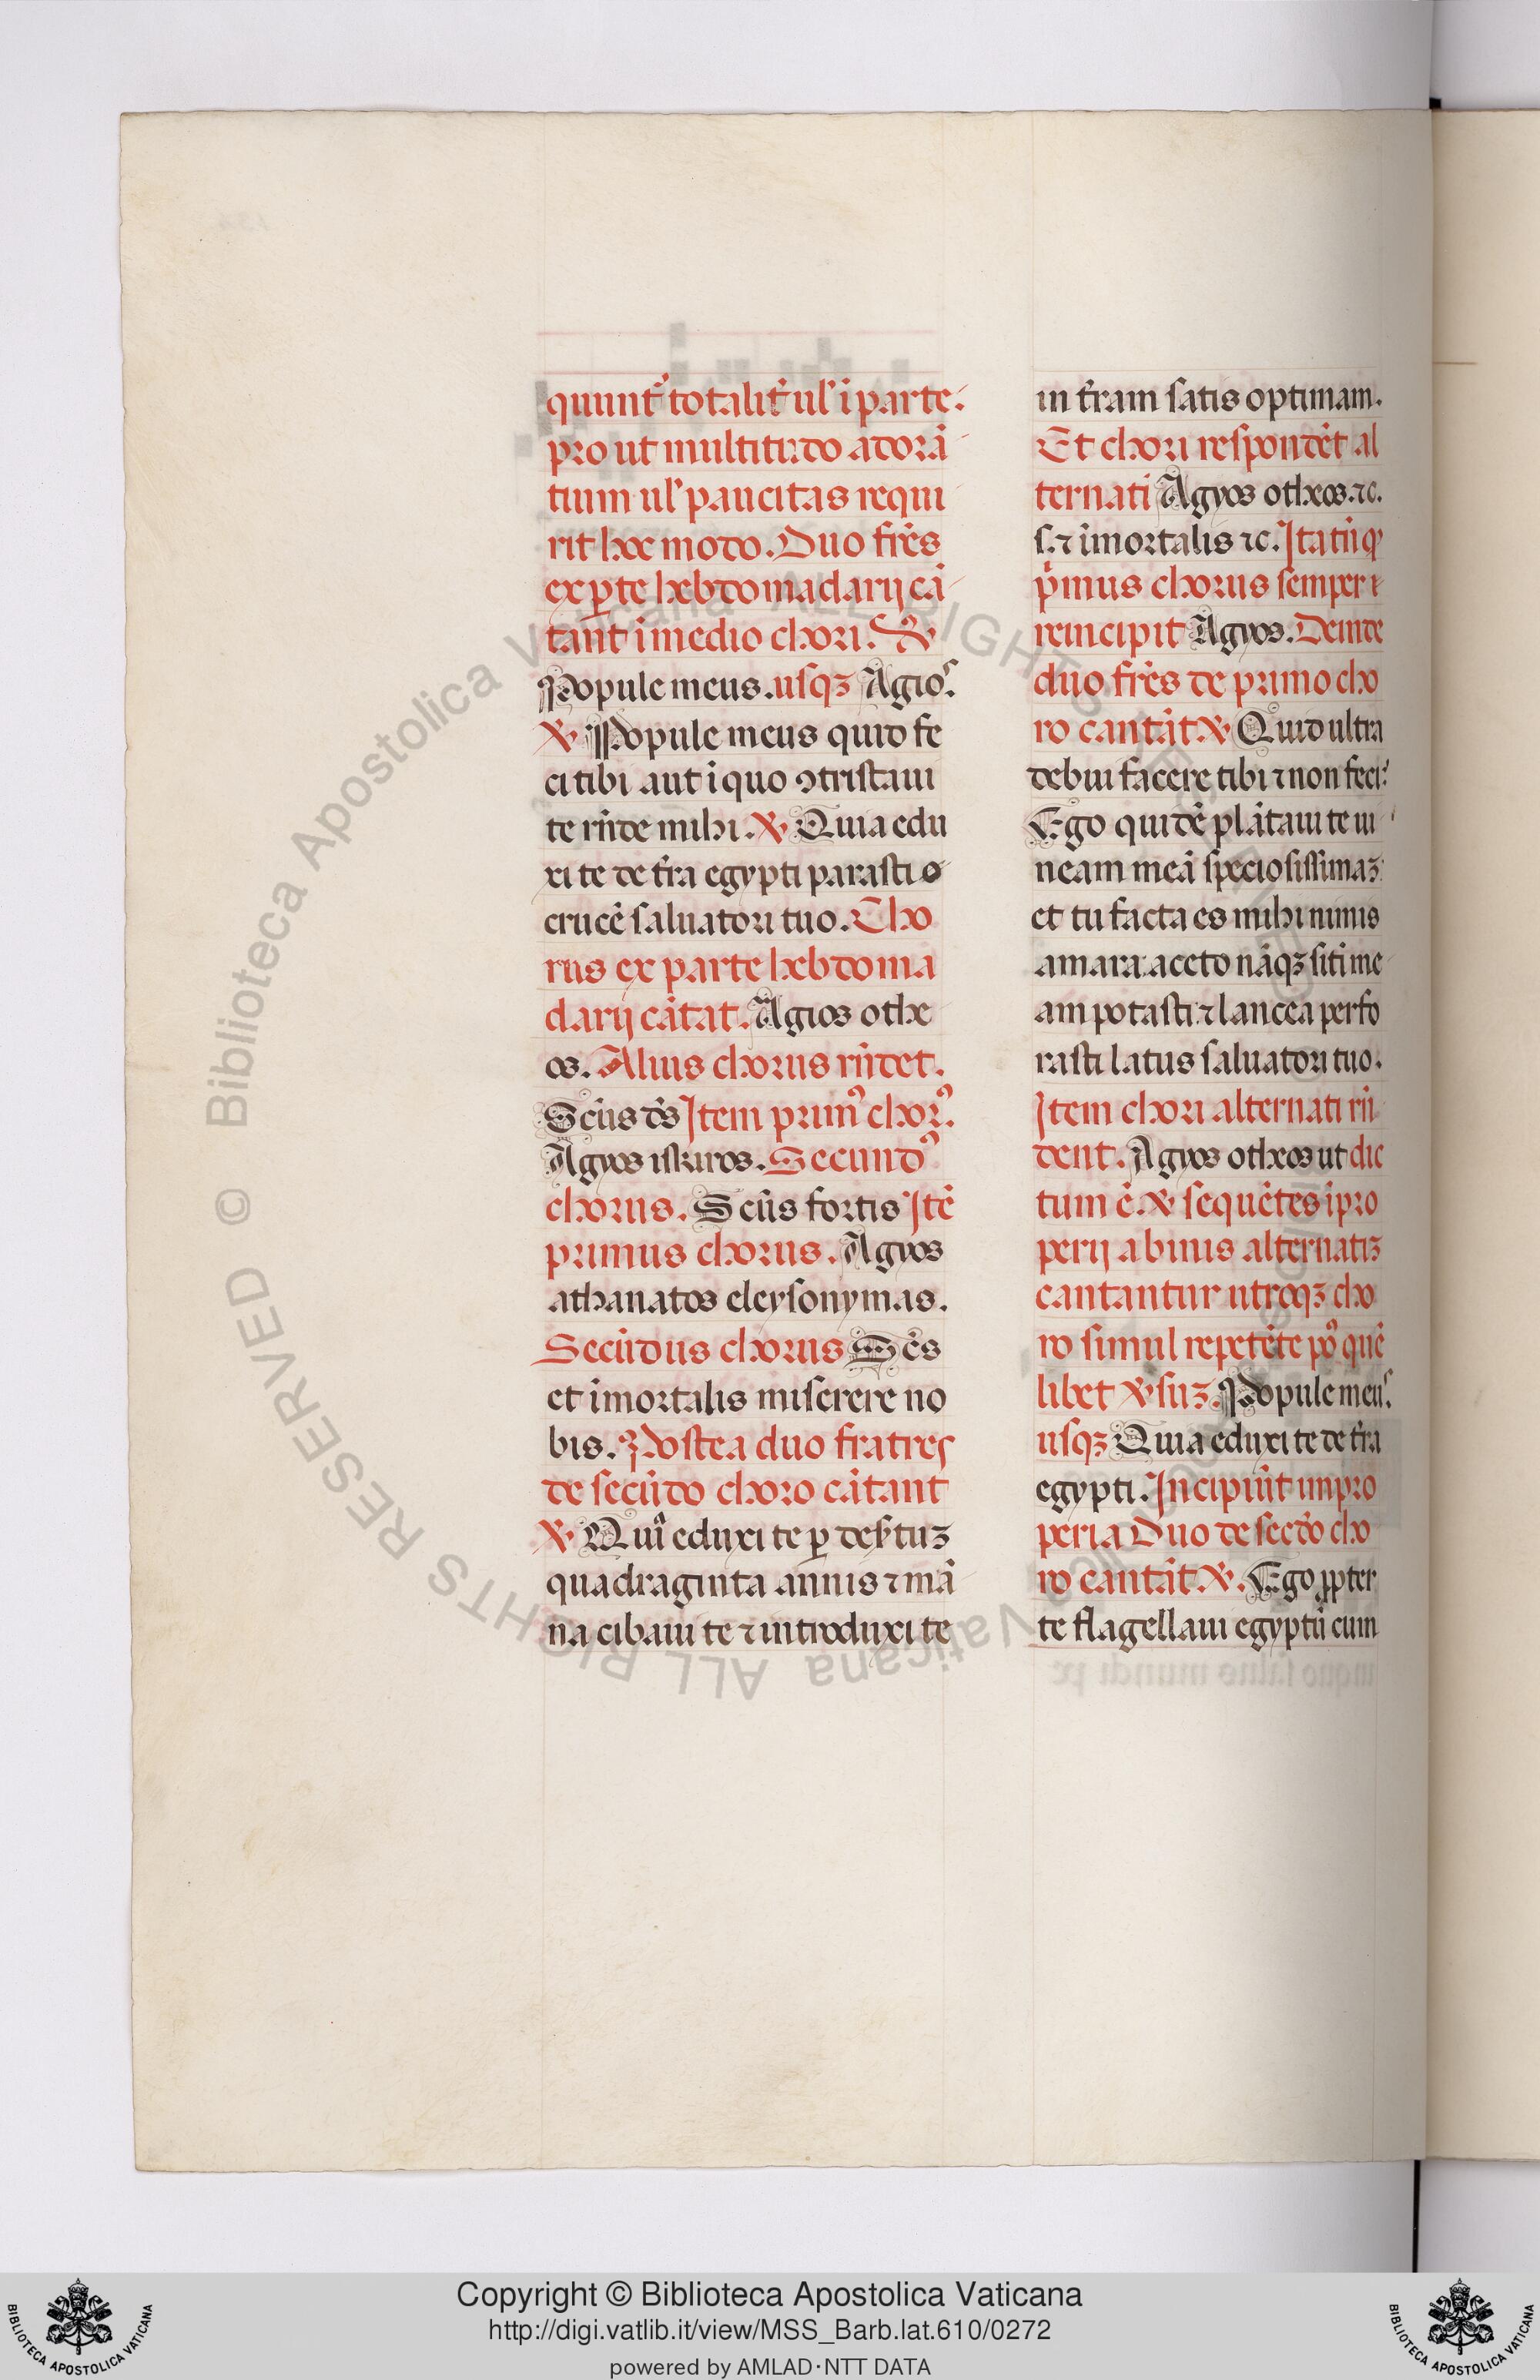 quunt᷑ totalit᷑ ul' ı̄ parte.
pro ut multitudo adorā
tium ul' paucitas requi
rit hoc modo. Duo fr̄es
ex ꝑte hebdomadarij cā
tant ı̄ medio chori. ℣
Popule meus. usqꝫ Agios.
℣ Popule meus quid fe
ci tibi aut ı̄ quo ꝯtristaui
te rn̄de mihi. ℣ Quia edu
xi te de tr̄a egypti parasti
crucē saluatori tuo. Cho
rus ex parte hebdoma
darij cātat. Agios othe
os. Alius chorus rn̄det.
Sc̄us ds̄ Item primꝰ chorꝰ.
Agyos iskiros. Secundꝰ
chorus. Sc̄us fortis Itē
primus chorus. Agyos
athanatos eleysonymas.
Secūdus chorus Sc̄s
et īmortalis miserere no
bis. Postea duo fratres
de secūdo choro cātant
℣ Quı̄ eduxi te ꝑ des̄tuꝫ
quadraginta annis ⁊ mā
na cibaui te ⁊ introduxi te
in tr̄am satis optimam.
Et chori respondēt al
ternati Agyos otheos. ⁊c.
s. ⁊ īmortalis ⁊c. Ita tn̄ qꝫ
p̄mus chorus semper
reincipit Agyos. Deinde
duo fr̄es de primo cho
ro cantāt ℣ Quid ultra
debui facere tibi ⁊ non feci?
Ego quidē plātaui te ui
neam meā speciosissimaꝫ
et tu facta es mihi nimis
amara: aceto nāqꝫ sitı̄ me
am potasti ⁊ lancea perfo
rasti latus saluatori tuo.
Item chori alternati rn̄
dent. Agyos otheos ut dic
tum ē. ℣ sequētes īpro
perij a binis alternatiꝫ
cantantur utroqꝫ cho
ro simul repetēte pꝰ quē
libet ℣suꝫ. Popule meus.
usqꝫ Quia eduxi te de tr̄a
egypti. Incipiūt inpro
peria Duo de sec̄do cho
ro cantāt ℣. Ego ꝓpter
te flagellaui egyptū cum
Copyright © Biblioteca Apostolica Vaticana
http://digi.vatlib.it/view/MSS_Barb.lat.610/0272
powered by AMLAD·NTT DATA
BIBLIOTECA APOSTOLICA VATICANA
BIBLIOTECA APOSTOLICA VATICANA
© Biblioteca Apostolica Vaticana ALL RIGHTS RESERVED